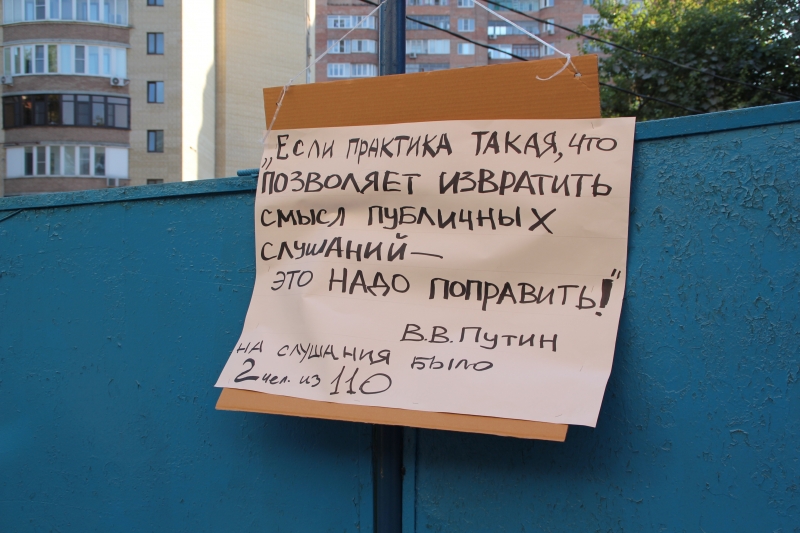 „Если практика такая, что
позволяет извратить
смысл публичных
слушаний—
это надо поправить!"
В.В. Путин
на слушания было
2 чел. из 110